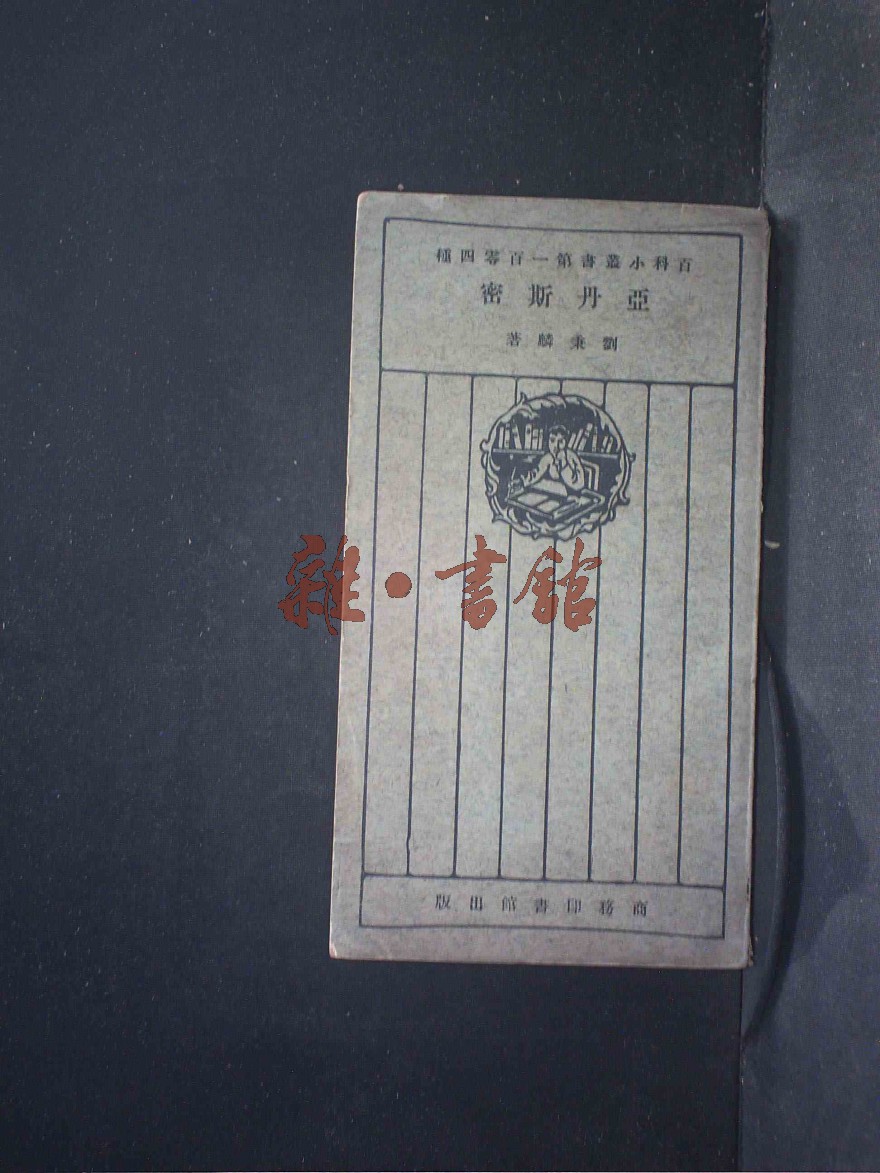 百科小叢書第一百零四種
亞丹斯密
劉秉麟著
雜·書館
商務印書館出版